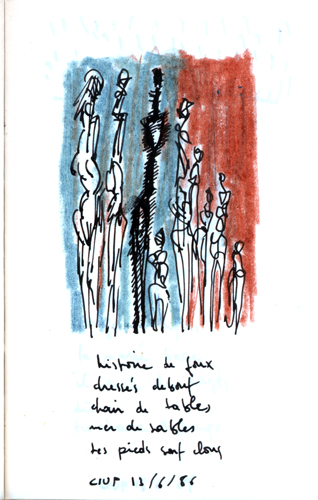 histoire de foux
dressés debout
chair de sables
mer de sables
tes pieds sont clous
CIUP 13/6/86